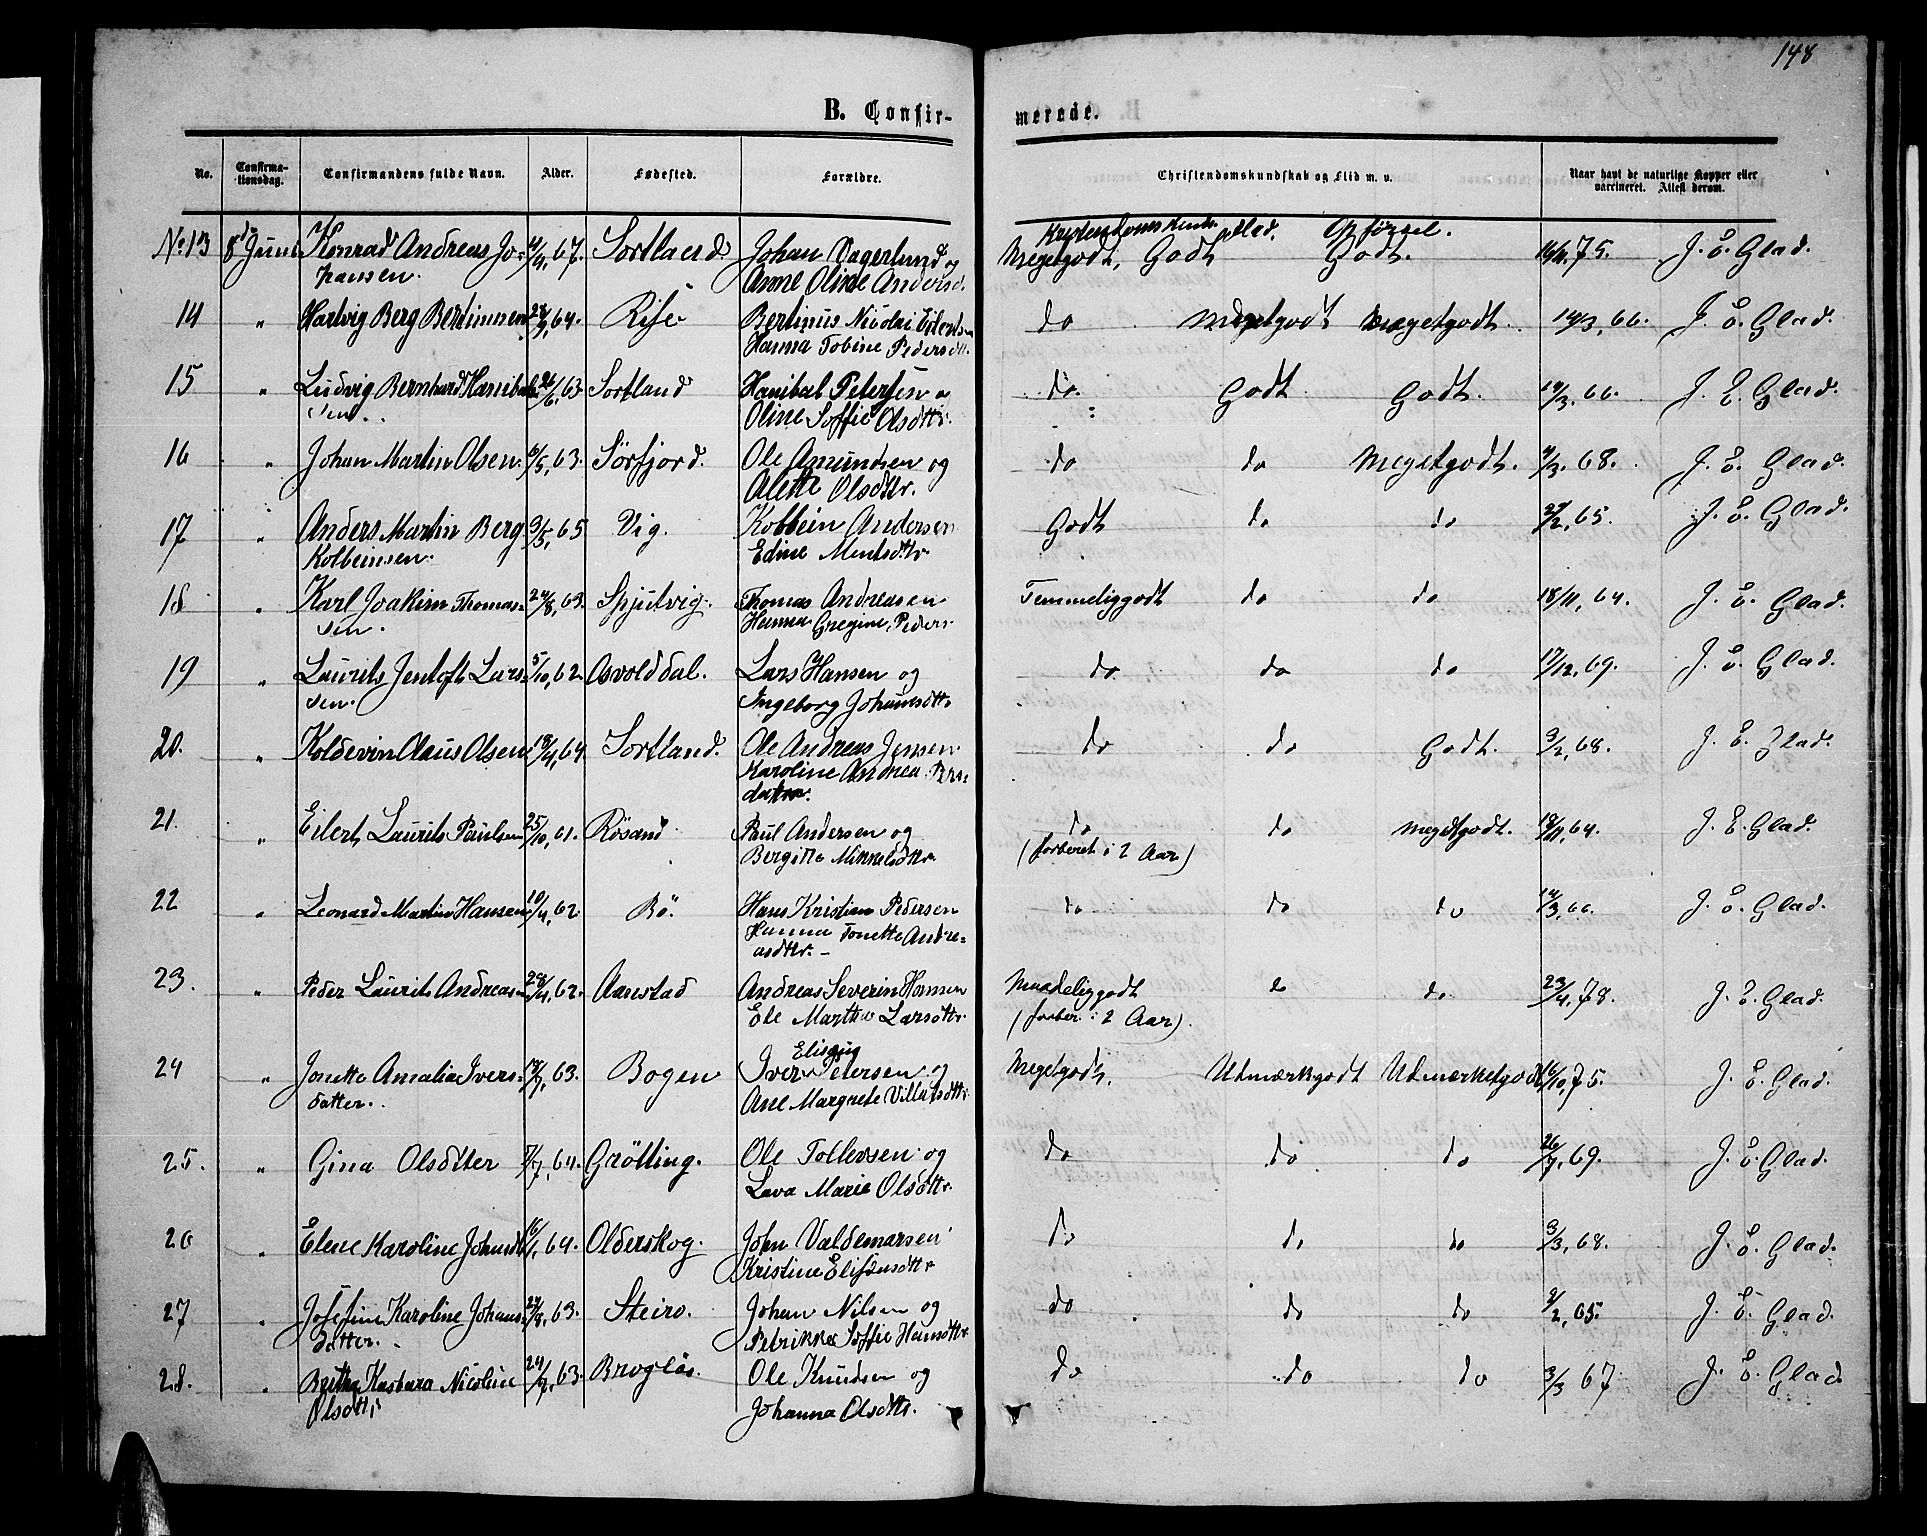 148
B. Confir-
merede.
No.
Confirma-
tionsdag.
Confirmandens fulde Navn.
Alder.
Fødested.
Forældre.
Christendomskundskab og Flid m. v.
Naar havt de naturlige Kopper eller
vaccineret. Attest derom.
Opførsel.
No. 13 8de Juni Konrad Andreas Jo- 67. Sortland Johan Vagerlund og Megetgodt, Godt Godt. 75. J. E. Glad.
hansen. Anne Oline Andersd.
14 " Hartvig Berg Bertinusen 64. Rise Bertinus Nicolai Eilertsen do Megetgodt Megetgodt. 14/3, 66. J. E. Glad.
Hanna Tobine Pedersdtt.
15 " Ludvig Bernhard Hanibal- 26/6, 63 Sortland Hanibal Petersen og do. Godt Godt. 14/3, 66. J. E. Glad.
sen. Oline Soffie Olsdttr.
16 " Johan Martin Olsen. 6/5, 63. Sörfjord. Ole Amundsen og do do Megetgodt. 4/3, 68. J. E. Glad.
Alette Olsdttr.
17 " Anders Martin Berg 3/5, 65 Vig. Kolbein Andersen Godt do do 27/2, 65. J. E. Glad.
Kolbeinsen. Edine Mentsdttr.
18 " Karl Joakim Thomas- 24/8, 63. Spjutvig. Thomas Andreasen Temmeliggodt do do 18/11, 64. J. E. Glad.
sen. Hanna Gregine, Peders
19 " Laurits Jentoft Lars- 5/10, 62. Osvolddal. Lars Hansen og do do do 17/12, 69. J. E. Glad.
sen. Ingeborg Johansdttr
20. " Koldevin Olaus Olsen. 18/4, 64 Sortland. Ole Andreas Jensen do do Godt. 3/2, 68. J. E. Glad.
Karoline Andrea Pers-
datter.
21. " Eilert Laurits Paulsen 25/10, 61. Rösand Paul Andersen og do do Megetgodt. 18/11, 64. J. E. Glad.
Bergitte Mikkelsdttr. (forberet i 2 Aar)
22 " Leonard Martin Hansen 10/4, 62 Bö. Hans Kristian Pedersen do do do 14/3, 66. J. E. Glad.
Hanna Tonette Andre-
asdttr. -
23. " Peder Laurits Andreasen 28/4, 62. Aanstad Andreas Severin Hansen Maadeliggodt do do 23/4, 78. J. E. Glad.
Ele Martha Larsdttr. (forber. i 2 Aar).
24 " Jonette Amalia Ivers- 63. Bogen Iver Elisæus Petersen og Megetgodt. Udmærkgodt Udmærketgodt 16/10, 75. J. E. Glad.
datter. Ane Margrete Villatsdttr.
25. " Gina Olsdtter 7/7, 64. Grötting. Ole Tollevsen og do do do 26/7, 69. J. E. Glad.
Lava Marie Olsdttr.
26 " Elene Karoline Johnsdt 16/1, 64. Olderskog. John Valdemarsen do do do 3/3, 68. J. E. Glad.
Kristine Elifsensdttr
27 " Josefine Karoline Johans- 24/8, 63. Steiro. Johan Nilsen og do do do 2/2, 65. J. E. Glad.
datter. Petrikke Soffie Hansdttr.
28. " Berthe Kasbara Nicoline 63. Brogløs. Ole Knudsen og do do do 3/3 67 J. E. Glad
Olsdttr Johanna Olsdttr.